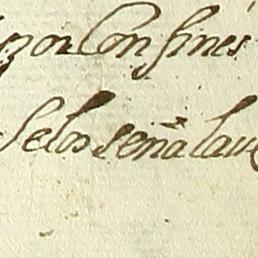 por Con fines
se los señalava